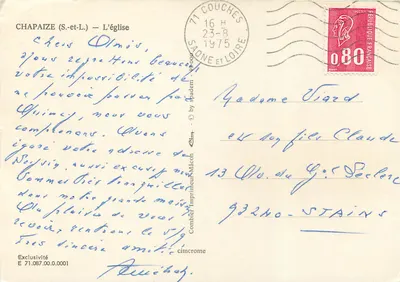 CHAPAIZE (S.-et-L.) — L'église
Chers Amis,
nous regrettons beaucoup
votre impossibilité de
ne pouvoir passer par
Quincy, nous vous
comprenons. Avons
égaré votre adresse de
aussi excusez nous
Sommes très tranquilles
dans notre grande maison
Au plaisir de vous
revoir, rentrons le 5/9
Très sincère amitié
Exclusivité
E 71.087.00.0.0001
Combier Imprimeur Mâcon
cimcrome
71 COUCHES
16 H
23-8
1975
SAONE ET LOIRE
REPUBLIQUE FRANÇAISE
0,80
Madame Viard
et ses fils Claude
13 Av. du Gal Leclerc
93240 - STAINS